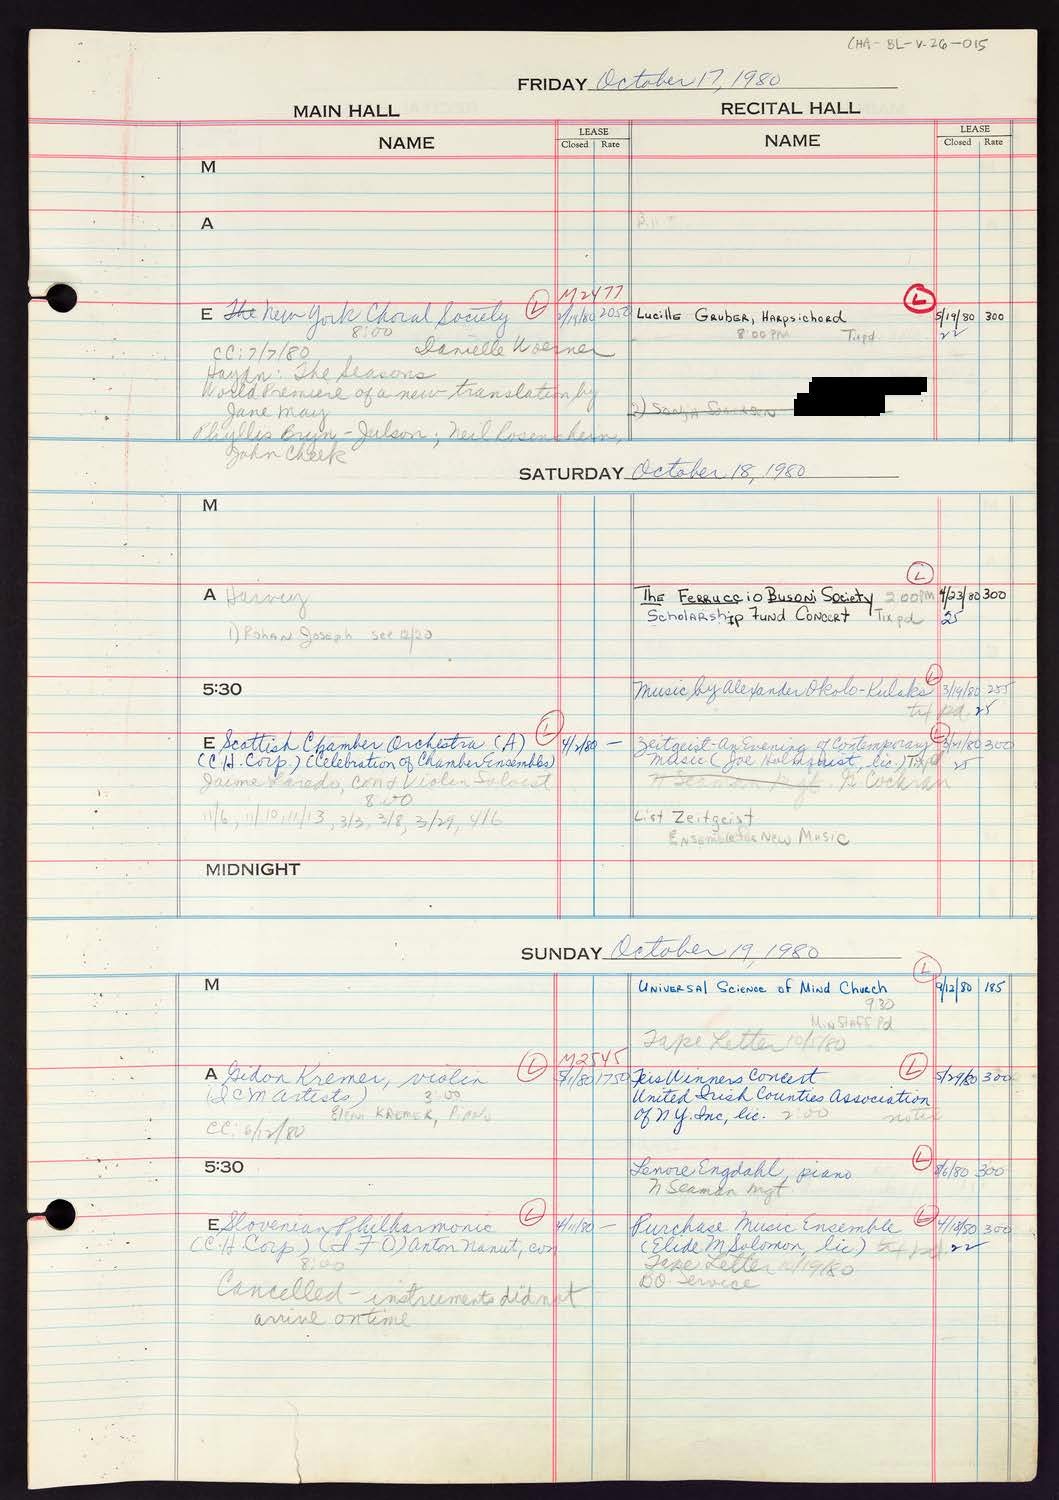 CHA-BL-V-26-015
FRIDAY October 17, 1980
MAIN HALL
RECITAL HALL
NAME
LEASE
Closed Rate
NAME
LEASE
Closed Rate
M
A
M2477
E The New York Choral Society L 2/19/80 2050
8:00
Danielle Woerner
CC: 7/7/80
Haydn: The Seasons
World Premiere of a new translation by
Jane May
Phyllis Bryn-Julson; Neil Rosenshein,
John Cheek
L
Lucille Gruber, Harpsichord 5/19/80 300
8:00 PM Tix pd. 22
2)
SATURDAY October 18, 1980
M
A Harvey
1) Rohan Joseph see 12/20
L
The Ferruccio Busoni Society 2:00 PM 4/23/80 300
Scholarship Fund Concert Tix pd 25
5:30
Music by Alexander Okolo-Kulaks L 3/19/80 255
tix pd. 25
E Scottish Chamber Orchestra (A) L 4/2/80 —
(C.H. Corp.) (Celebration of Chamber Ensembles)
Jaime Laredo, cond & Violin Soloist
8:00
11/6, 11/10, 11/13, 3/3, 3/8, 3/29, 4/6
Zeitgeist-An Evening of Contemporary L 300
Music (Joe Holmquist, lic.) Tix pd 25
N Seaman Mgt. Cochran
List Zeitgeist
Ensemble for New Music
MIDNIGHT
SUNDAY October 19, 1980
M
L
Universal Science of Mind Church 9/12/80 185
9:30
Min Staff Pd
Tape Letter 10/5/80
M2545
A Gidon Kremer, violin L 5/1/80 1750
(ICM Artists) 3:00
Elena KREMER, Piano
CC: 6/12/80
Feis Winners Concert L 5/29/80 300
United Irish Counties Association
of N.Y. Inc, lic. 2:00 notes
5:30
Lenore Engdahl, piano L 8/6/80 300
N Seaman Mgt
E Slovenian Philharmonic L 4/11/80 —
(C.H. Corp.) (I F O) Anton Nanut, con
8:00
Cancelled - instruments did not
arrive on time
Purchase Music Ensemble L 4/18/80 300
(Elide M Solomon, lic) tix pd. 22
Tape Letter 10/19/80
DO Service